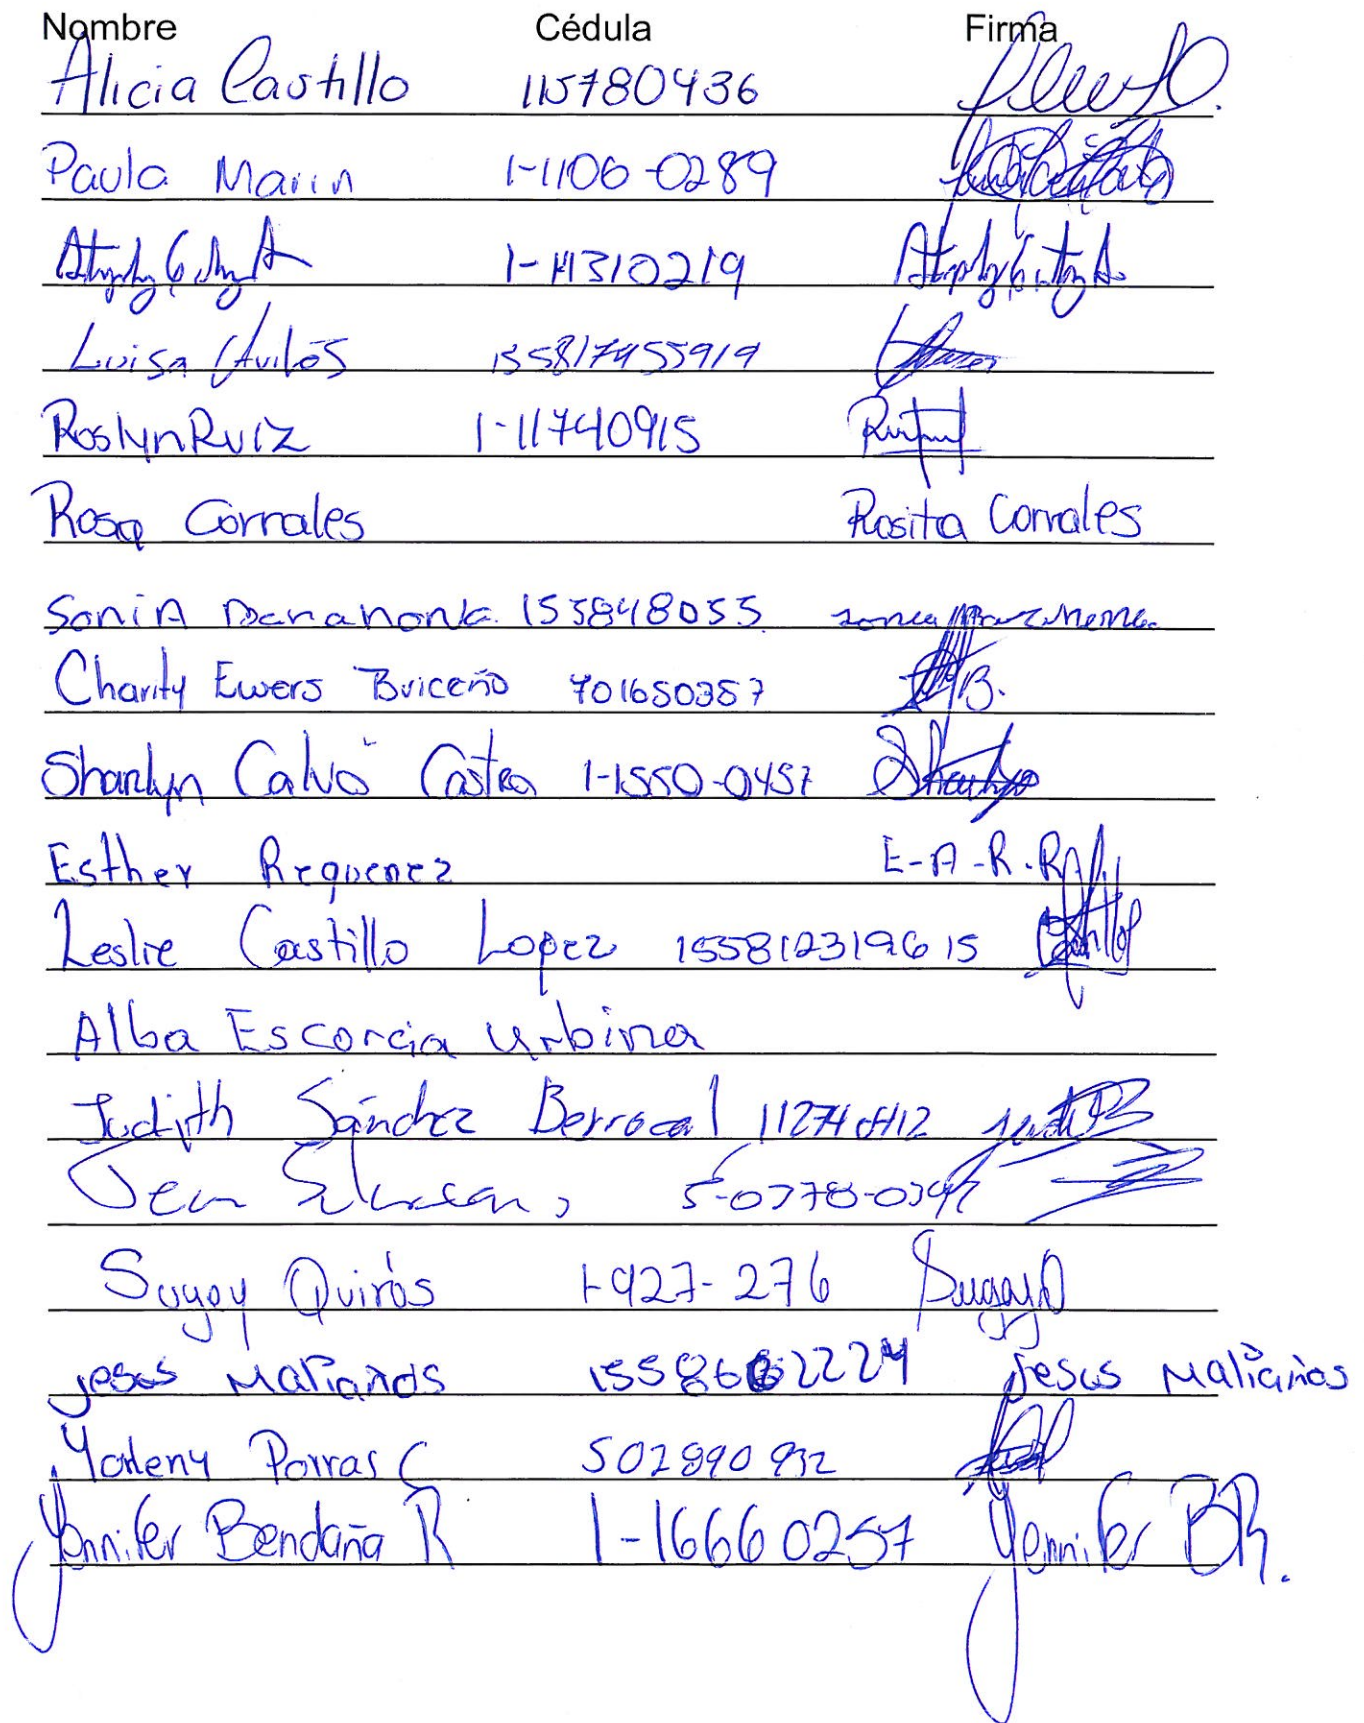 Nombre Cédula Firma
Alicia Castillo 115780436
Paula Marin 1-1106-0289
1-11310219
Luisa Avilés 155817455919
Roslyn Ruiz 1-11740915
Rosa Corrales Rosita Corrales
Sonia 155848055
Charity Ewers Briceño 701650357 B.
Sharlyn Calvo Castro 1-1550-0457
Esther E-A-R-R
Leslie Castillo Lopez 155812319615
Alba Escorcia Urbina
Judith Sánchez Berrocal
Sugey Quirós 1-927-276
jesus Matianos jesus Matianos
Yorleny Porras C 502890932
Jennifer Bendaña R 1-16660257 Jennifer BR.